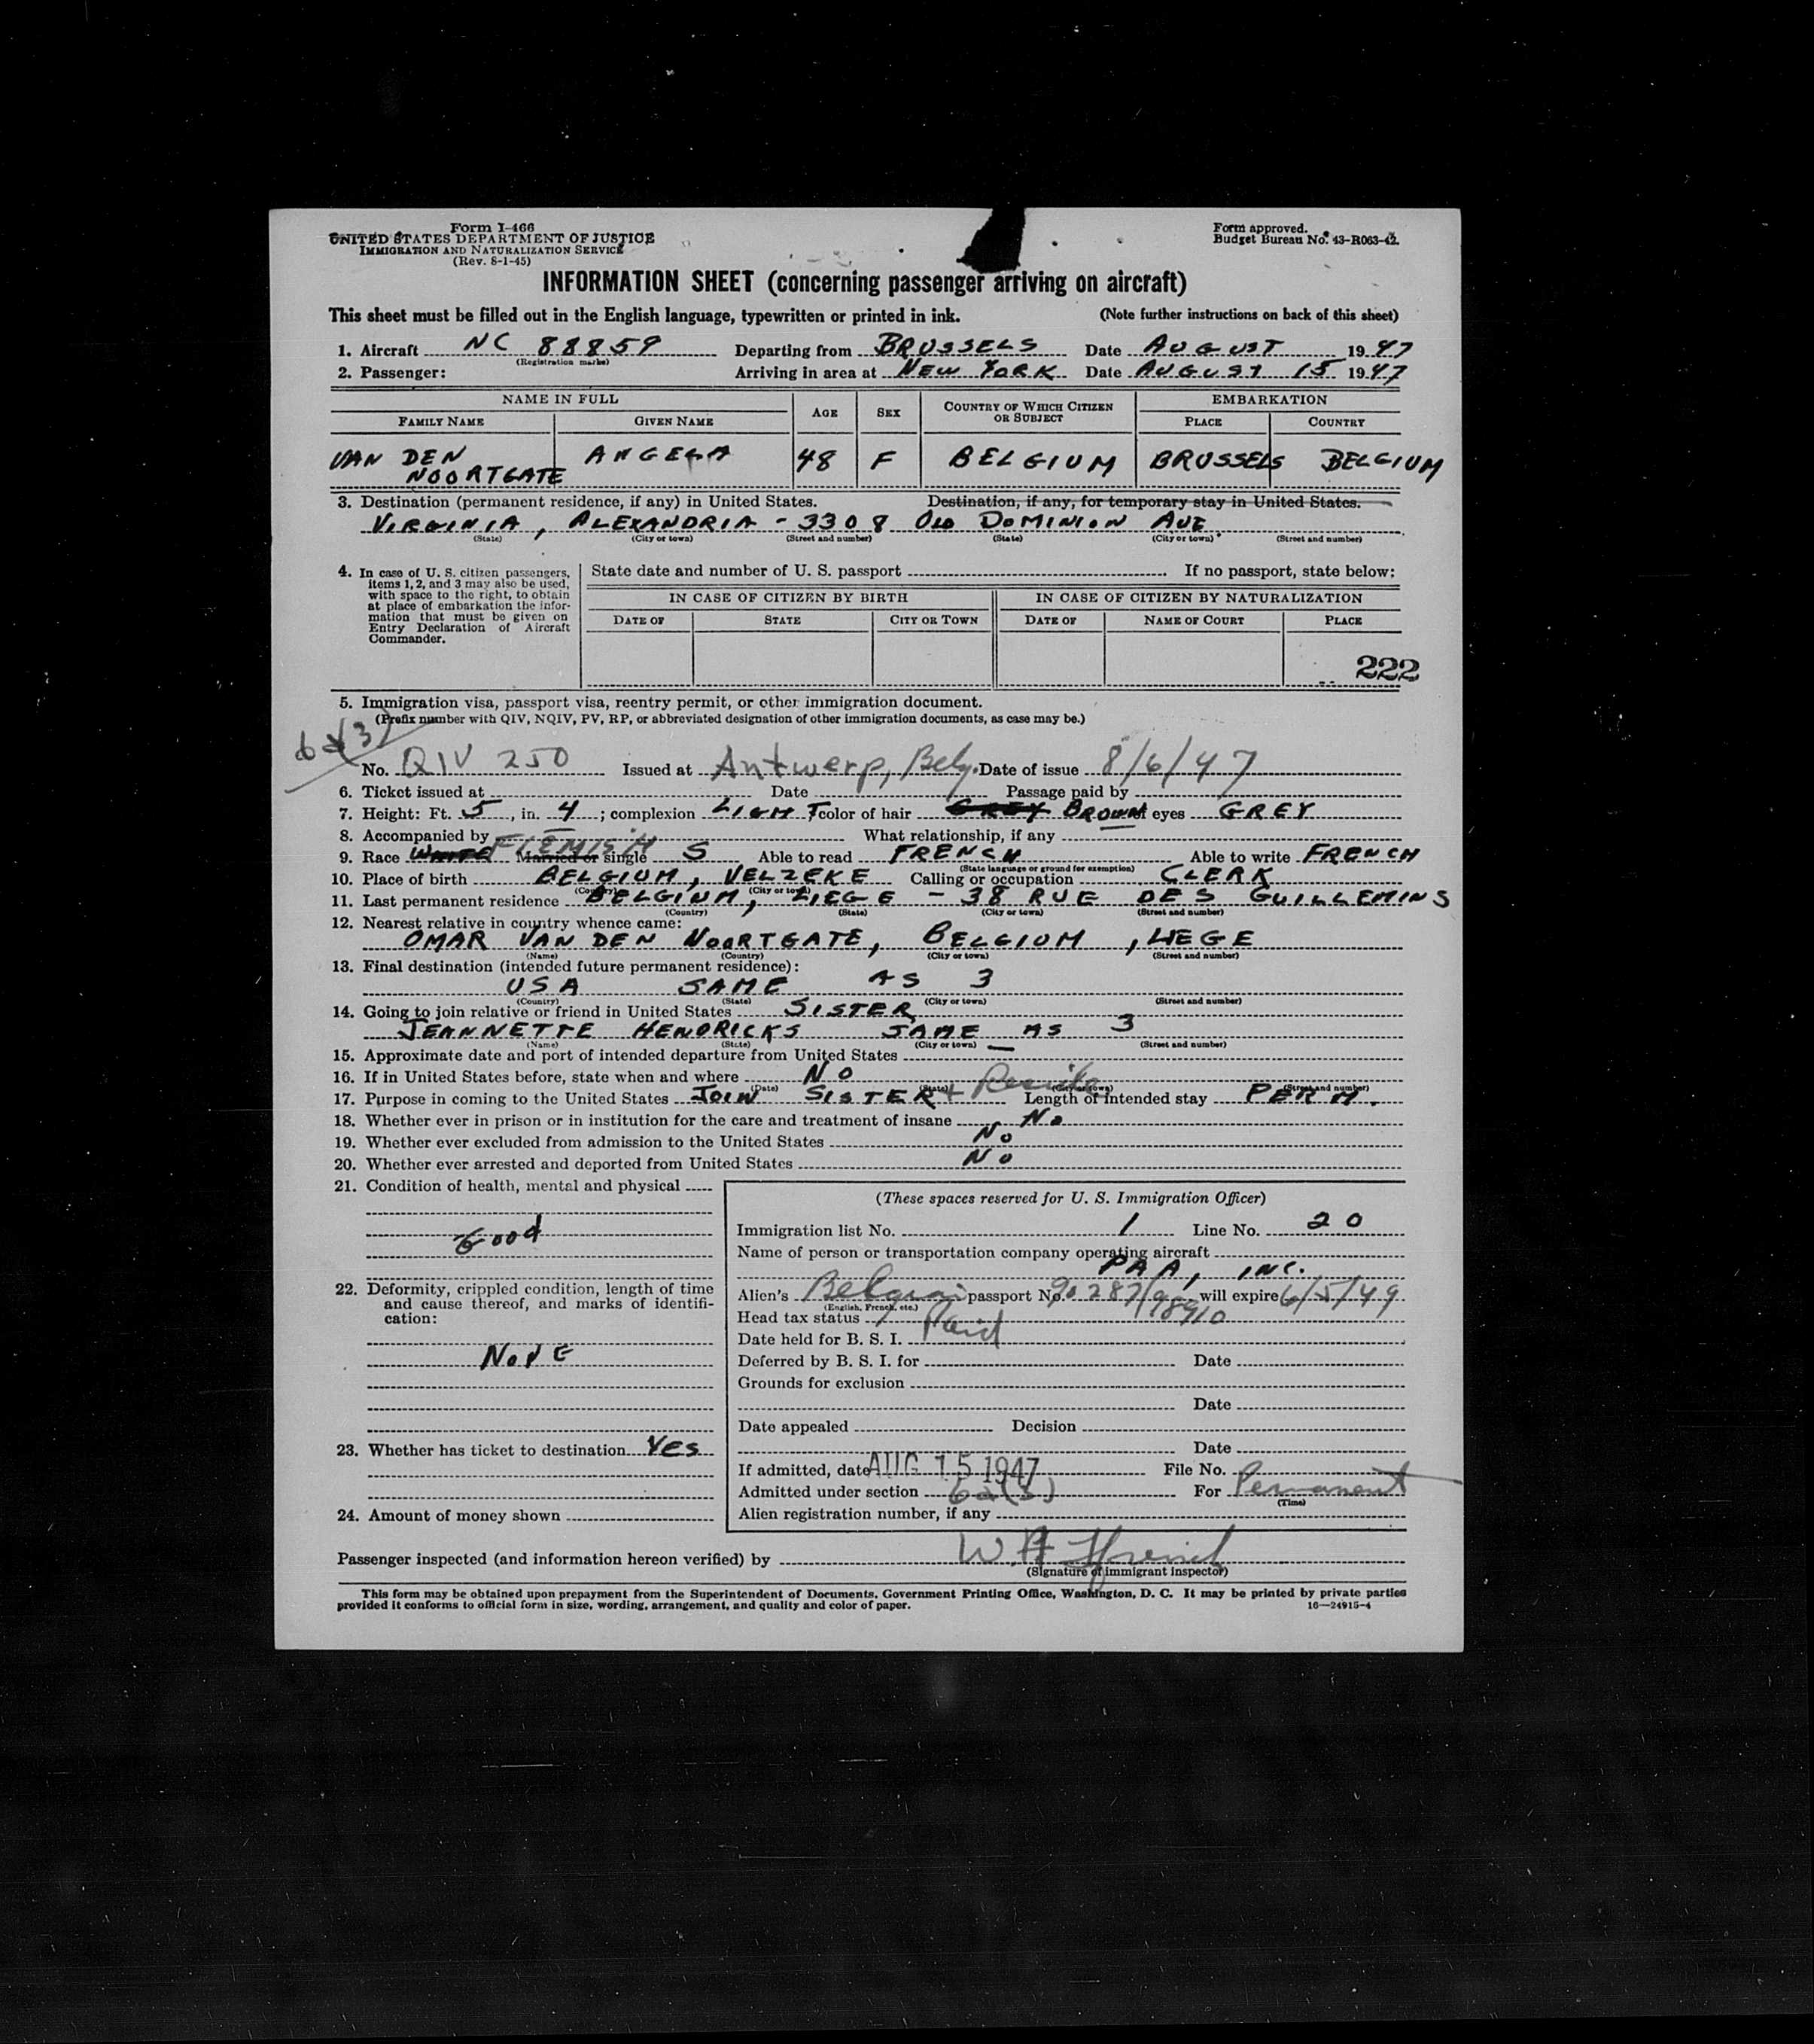 Form I-466
UNITED STATES DEPARTMENT OF JUSTICE
IMMIGRATION AND NATURALIZATION SERVICE
(Rev. 8-1-45)
Form approved.
Budget Bureau No. 43-R063-42.
INFORMATION SHEET (concerning passenger arriving on aircraft)
This sheet must be filled out in the English language, typewritten or printed in ink. (Note further instructions on back of this sheet)
1. Aircraft NC 88859 Departing from BRUSSELS Date AUGUST 1947
(Registration marks)
2. Passenger: Arriving in area at NEW YORK Date AUGUST 15 1947
NAME IN FULL AGE SEX COUNTRY OF WHICH CITIZEN OR SUBJECT EMBARKATION
FAMILY NAME GIVEN NAME PLACE COUNTRY
VAN DEN NOORTGATE ANGELA 48 F BELGIUM BRUSSELS BELGIUM
3. Destination (permanent residence, if any) in United States. Destination, if any, for temporary stay in United States.
VIRGINIA, ALEXANDRIA - 3308 OLD DOMINION AVE
(State) (City or town) (Street and number) (State) (City or town) (Street and number)
4. In case of U. S. citizen passengers, items 1, 2, and 3 may also be used, with space to the right, to obtain at place of embarkation the information that must be given on Entry Declaration of Aircraft Commander.
State date and number of U. S. passport If no passport, state below:
IN CASE OF CITIZEN BY BIRTH IN CASE OF CITIZEN BY NATURALIZATION
DATE OF STATE CITY OR TOWN DATE OF NAME OF COURT PLACE
222
5. Immigration visa, passport visa, reentry permit, or other immigration document.
(Prefix number with QIV, NQIV, PV, RP, or abbreviated designation of other immigration documents, as case may be.)
6a(3)
No. QIV 250 Issued at Antwerp, Belg. Date of issue 8/6/47
6. Ticket issued at Date Passage paid by
7. Height: Ft. 5, in. 4; complexion LIGHT color of hair GREY BROWN eyes GREY
8. Accompanied by What relationship, if any
9. Race WHITE FLEMISH Married or single S Able to read FRENCH Able to write FRENCH
(State language or ground for exemption)
10. Place of birth BELGIUM, VELZEKE Calling or occupation CLERK
(Country) (City or town)
11. Last permanent residence BELGIUM, LIEGE - 38 RUE DES GUILLEMINS
(Country) (State) (City or town) (Street and number)
12. Nearest relative in country whence came:
OMAR VAN DEN NOORTGATE, BELGIUM, LIEGE
(Name) (Country) (City or town) (Street and number)
13. Final destination (intended future permanent residence):
USA SAME AS 3
(Country) (State) (City or town) (Street and number)
14. Going to join relative or friend in United States SISTER
JEANNETTE HENDRICKS SAME AS 3
(Name) (State) (City or town) (Street and number)
15. Approximate date and port of intended departure from United States —
16. If in United States before, state when and where NO
(Date) (State) (City or town) (Street and number)
17. Purpose in coming to the United States JOIN SISTER + Reside Length of intended stay PERM.
18. Whether ever in prison or in institution for the care and treatment of insane No
19. Whether ever excluded from admission to the United States No
20. Whether ever arrested and deported from United States No
21. Condition of health, mental and physical
Good
22. Deformity, crippled condition, length of time and cause thereof, and marks of identification:
NONE
23. Whether has ticket to destination Yes
24. Amount of money shown
(These spaces reserved for U. S. Immigration Officer)
Immigration list No. 1 Line No. 20
Name of person or transportation company operating aircraft
PAA, INC.
Alien's Belgian passport No. 90287/98910 will expire 6/5/49
(English, French, etc.)
Head tax status Paid
Date held for B. S. I.
Deferred by B. S. I. for Date
Grounds for exclusion
Date
Date appealed Decision
Date
If admitted, date AUG 15 1947 File No.
Admitted under section 6a(3) For Permanent
(Time)
Alien registration number, if any
Passenger inspected (and information hereon verified) by W. H.
(Signature of immigrant inspector)
This form may be obtained upon prepayment from the Superintendent of Documents, Government Printing Office, Washington, D. C. It may be printed by private parties
provided it conforms to official form in size, wording, arrangement, and quality and color of paper. 16—24915-4